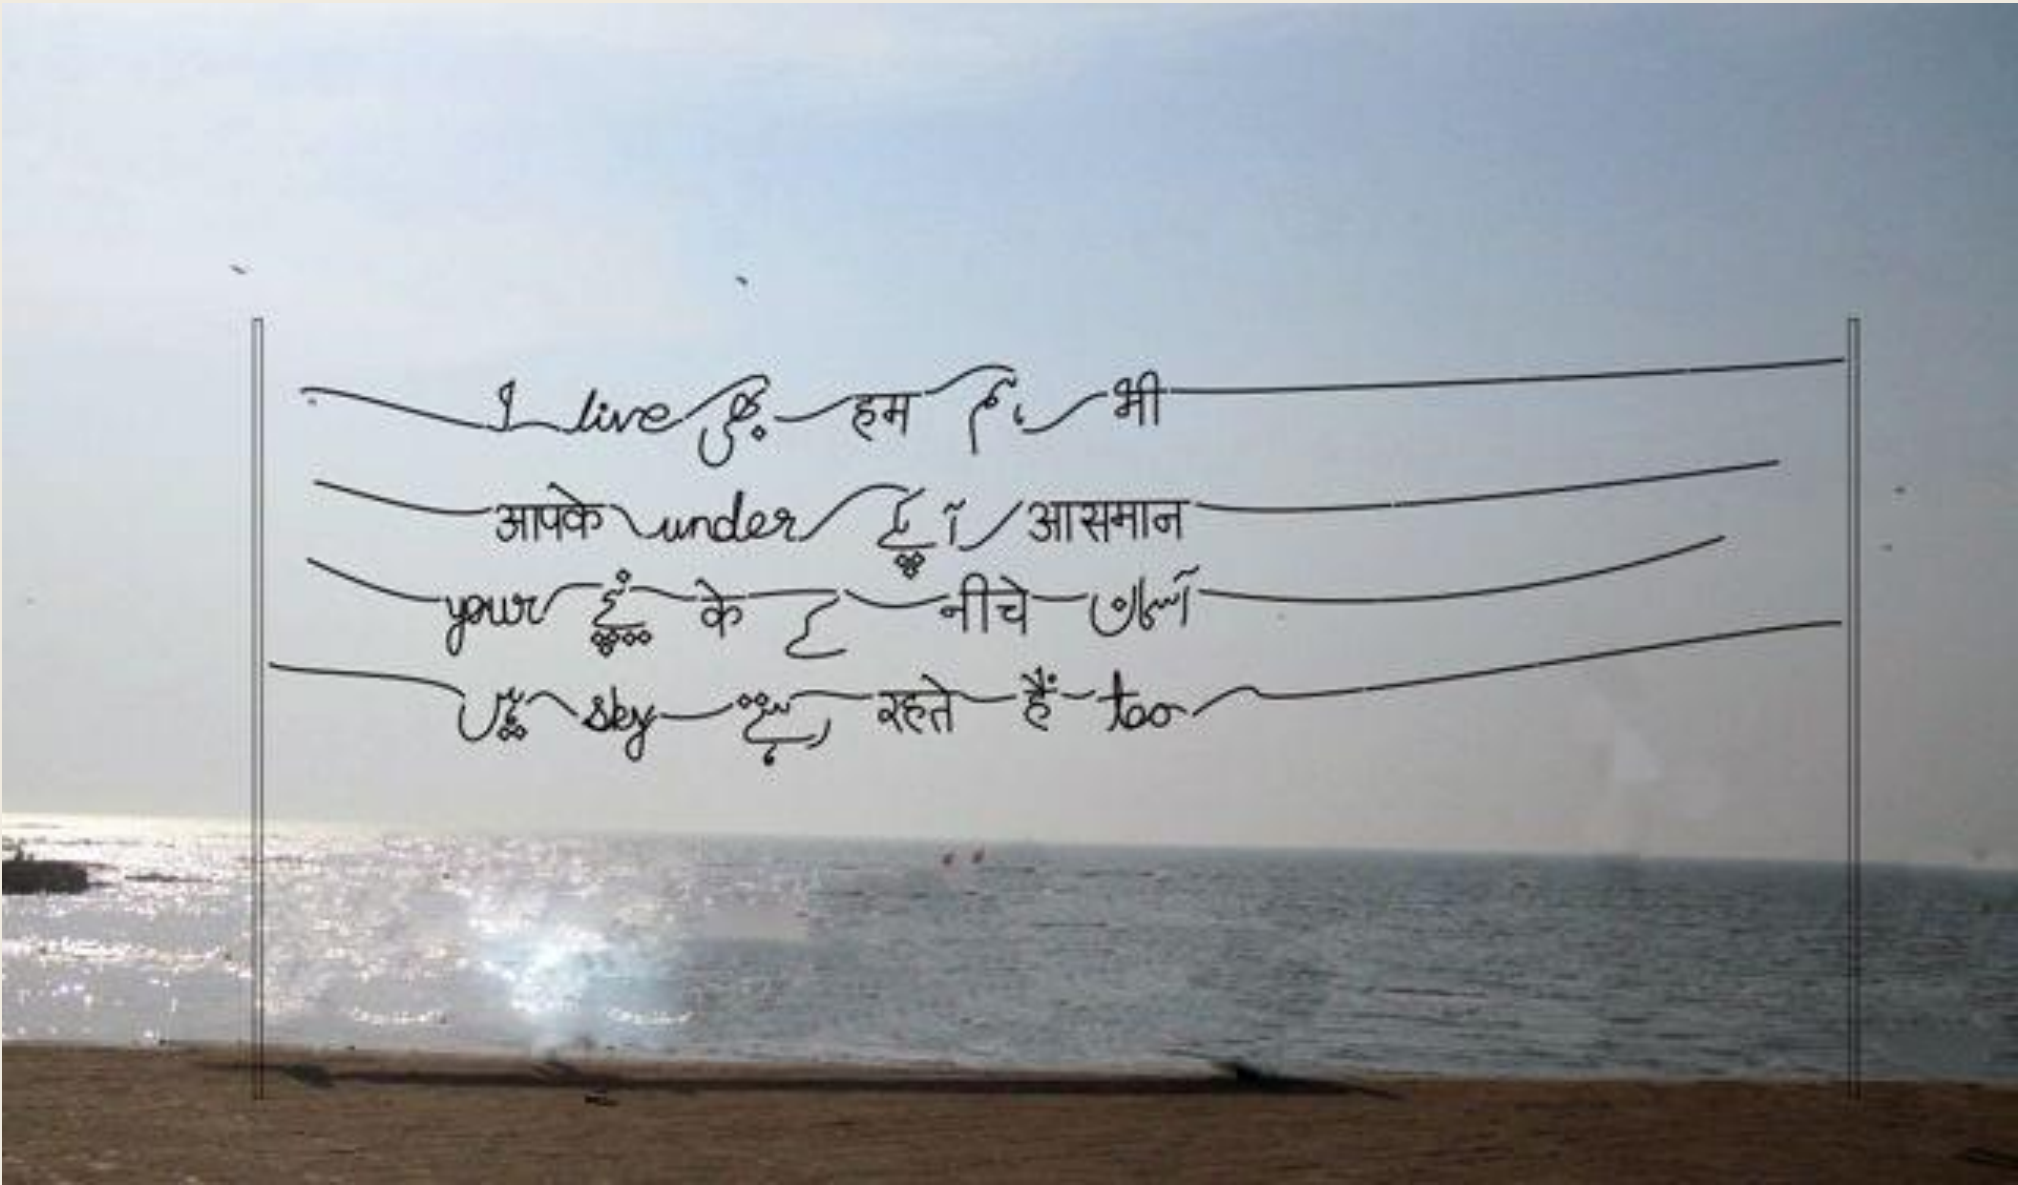 I live بھی हम ہم भी
आपके under آپکے आसमान
your نیچے के کے नीचे آسمان
ہیں sky رہتے रहते हैं too